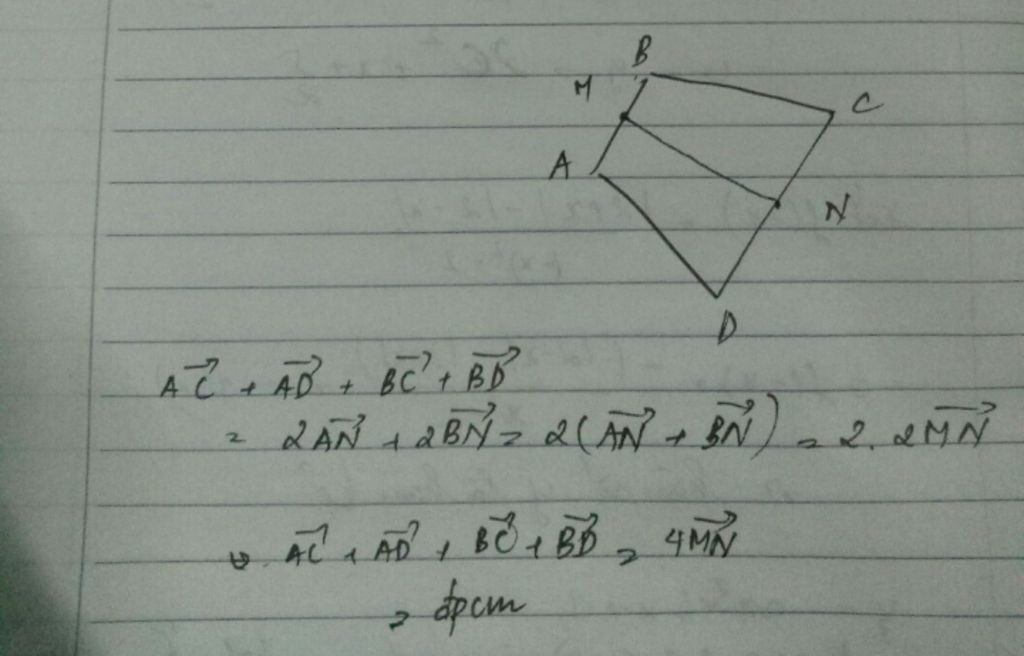 B
M
C
A
N
D
$\overrightarrow{AC} + \overrightarrow{AD} + \overrightarrow{BC} + \overrightarrow{BD}$
$= 2\overrightarrow{AN} + 2\overrightarrow{BN} = 2(\overrightarrow{AN} + \overrightarrow{BN}) = 2.2\overrightarrow{MN}$
$\overrightarrow{AC} + \overrightarrow{AD} + \overrightarrow{BC} + \overrightarrow{BD} = 4\overrightarrow{MN}$
= đpcm